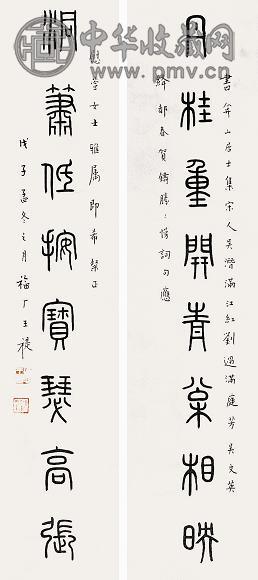 中华收藏网
www.pmv.cn
書弁山居士集宋人吳潛滿江紅劉過滿庭芳吳文英
丹桂重開青相映
絳都春賀鑄勝勝慢詞句應
女士雅屬即希槃正
洞簫低按寶瑟高張
戊子孟冬之月福厂王禔